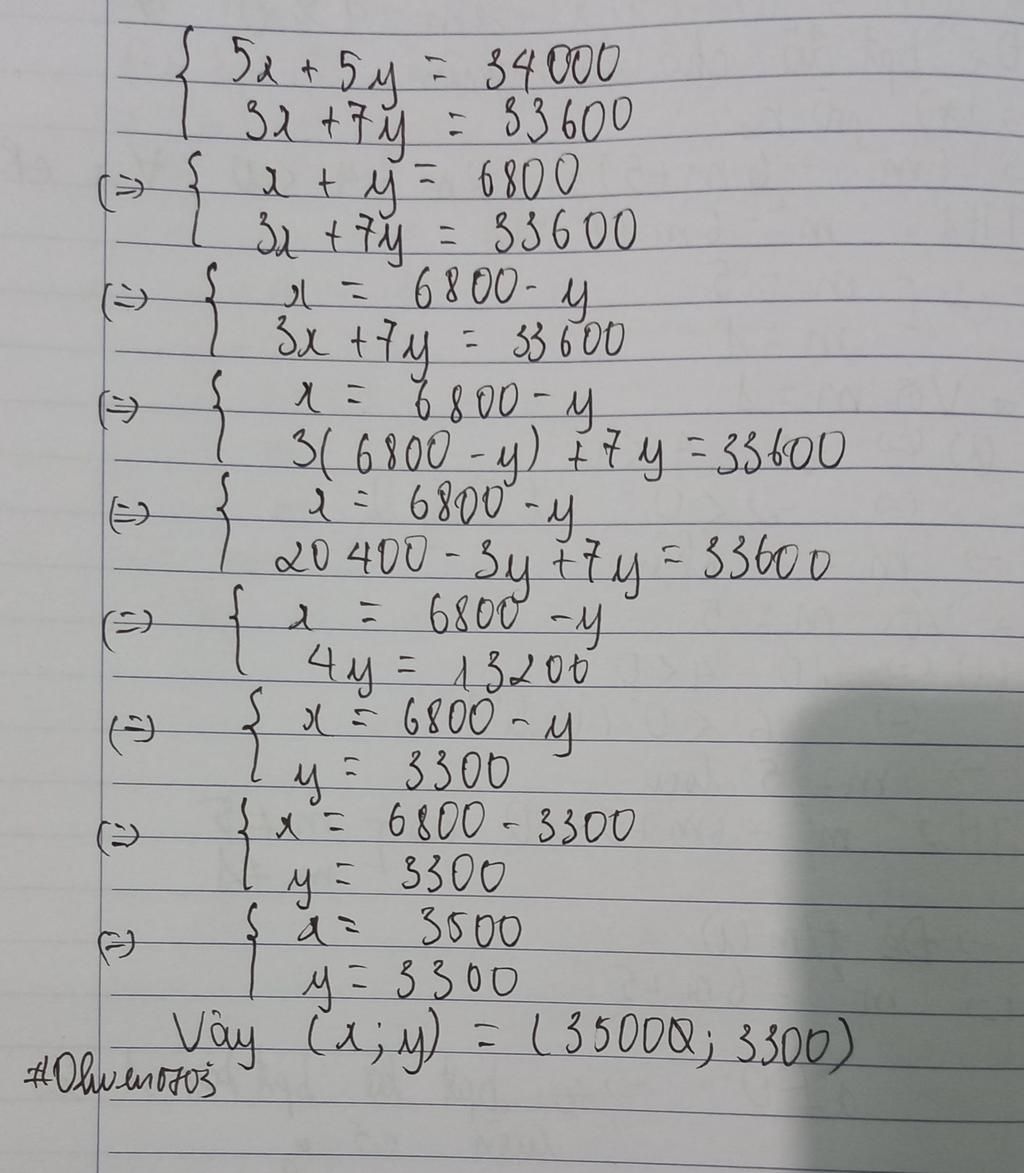 { 5x + 5y = 34000
3x + 7y = 33600
(=) { x + y = 6800
3x + 7y = 33600
(=) { x = 6800 - y
3x + 7y = 33600
(=) { x = 6800 - y
3( 6800 - y) + 7y = 33600
(=) { x = 6800 - y
20 400 - 3y + 7y = 33600
(=) { x = 6800 - y
4y = 13200
(=) { x = 6800 - y
y = 3300
(=) { x = 6800 - 3300
y = 3300
(=) { x = 3500
y = 3300
Vậy (x; y) = (35000; 3300)